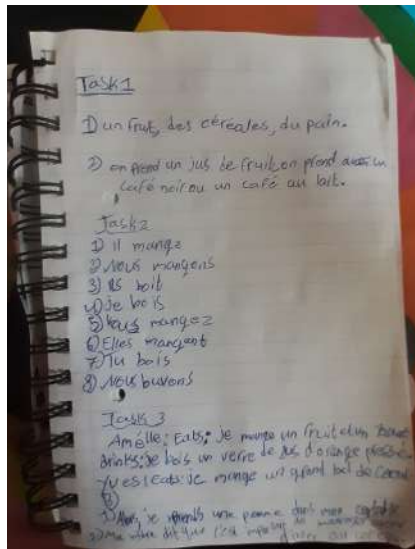 Task1
1) un fruit, des céréales, du pain.
2) on prend un jus de fruit on prend aussi un
café noir ou un café au lait.
Task2
1) il mange
2) Nous mangeons
3) ils boit
4) je bois
5) vous mangez
6) Elles mangent
7) Tu bois
8) Nous buvons
Task 3
Amélie: Eats: je mange un fruit et un
drinks: je bois un verre de jus d'orange
Yves: eats: je mange un grand bol de
1) je prends une pomme dans mon